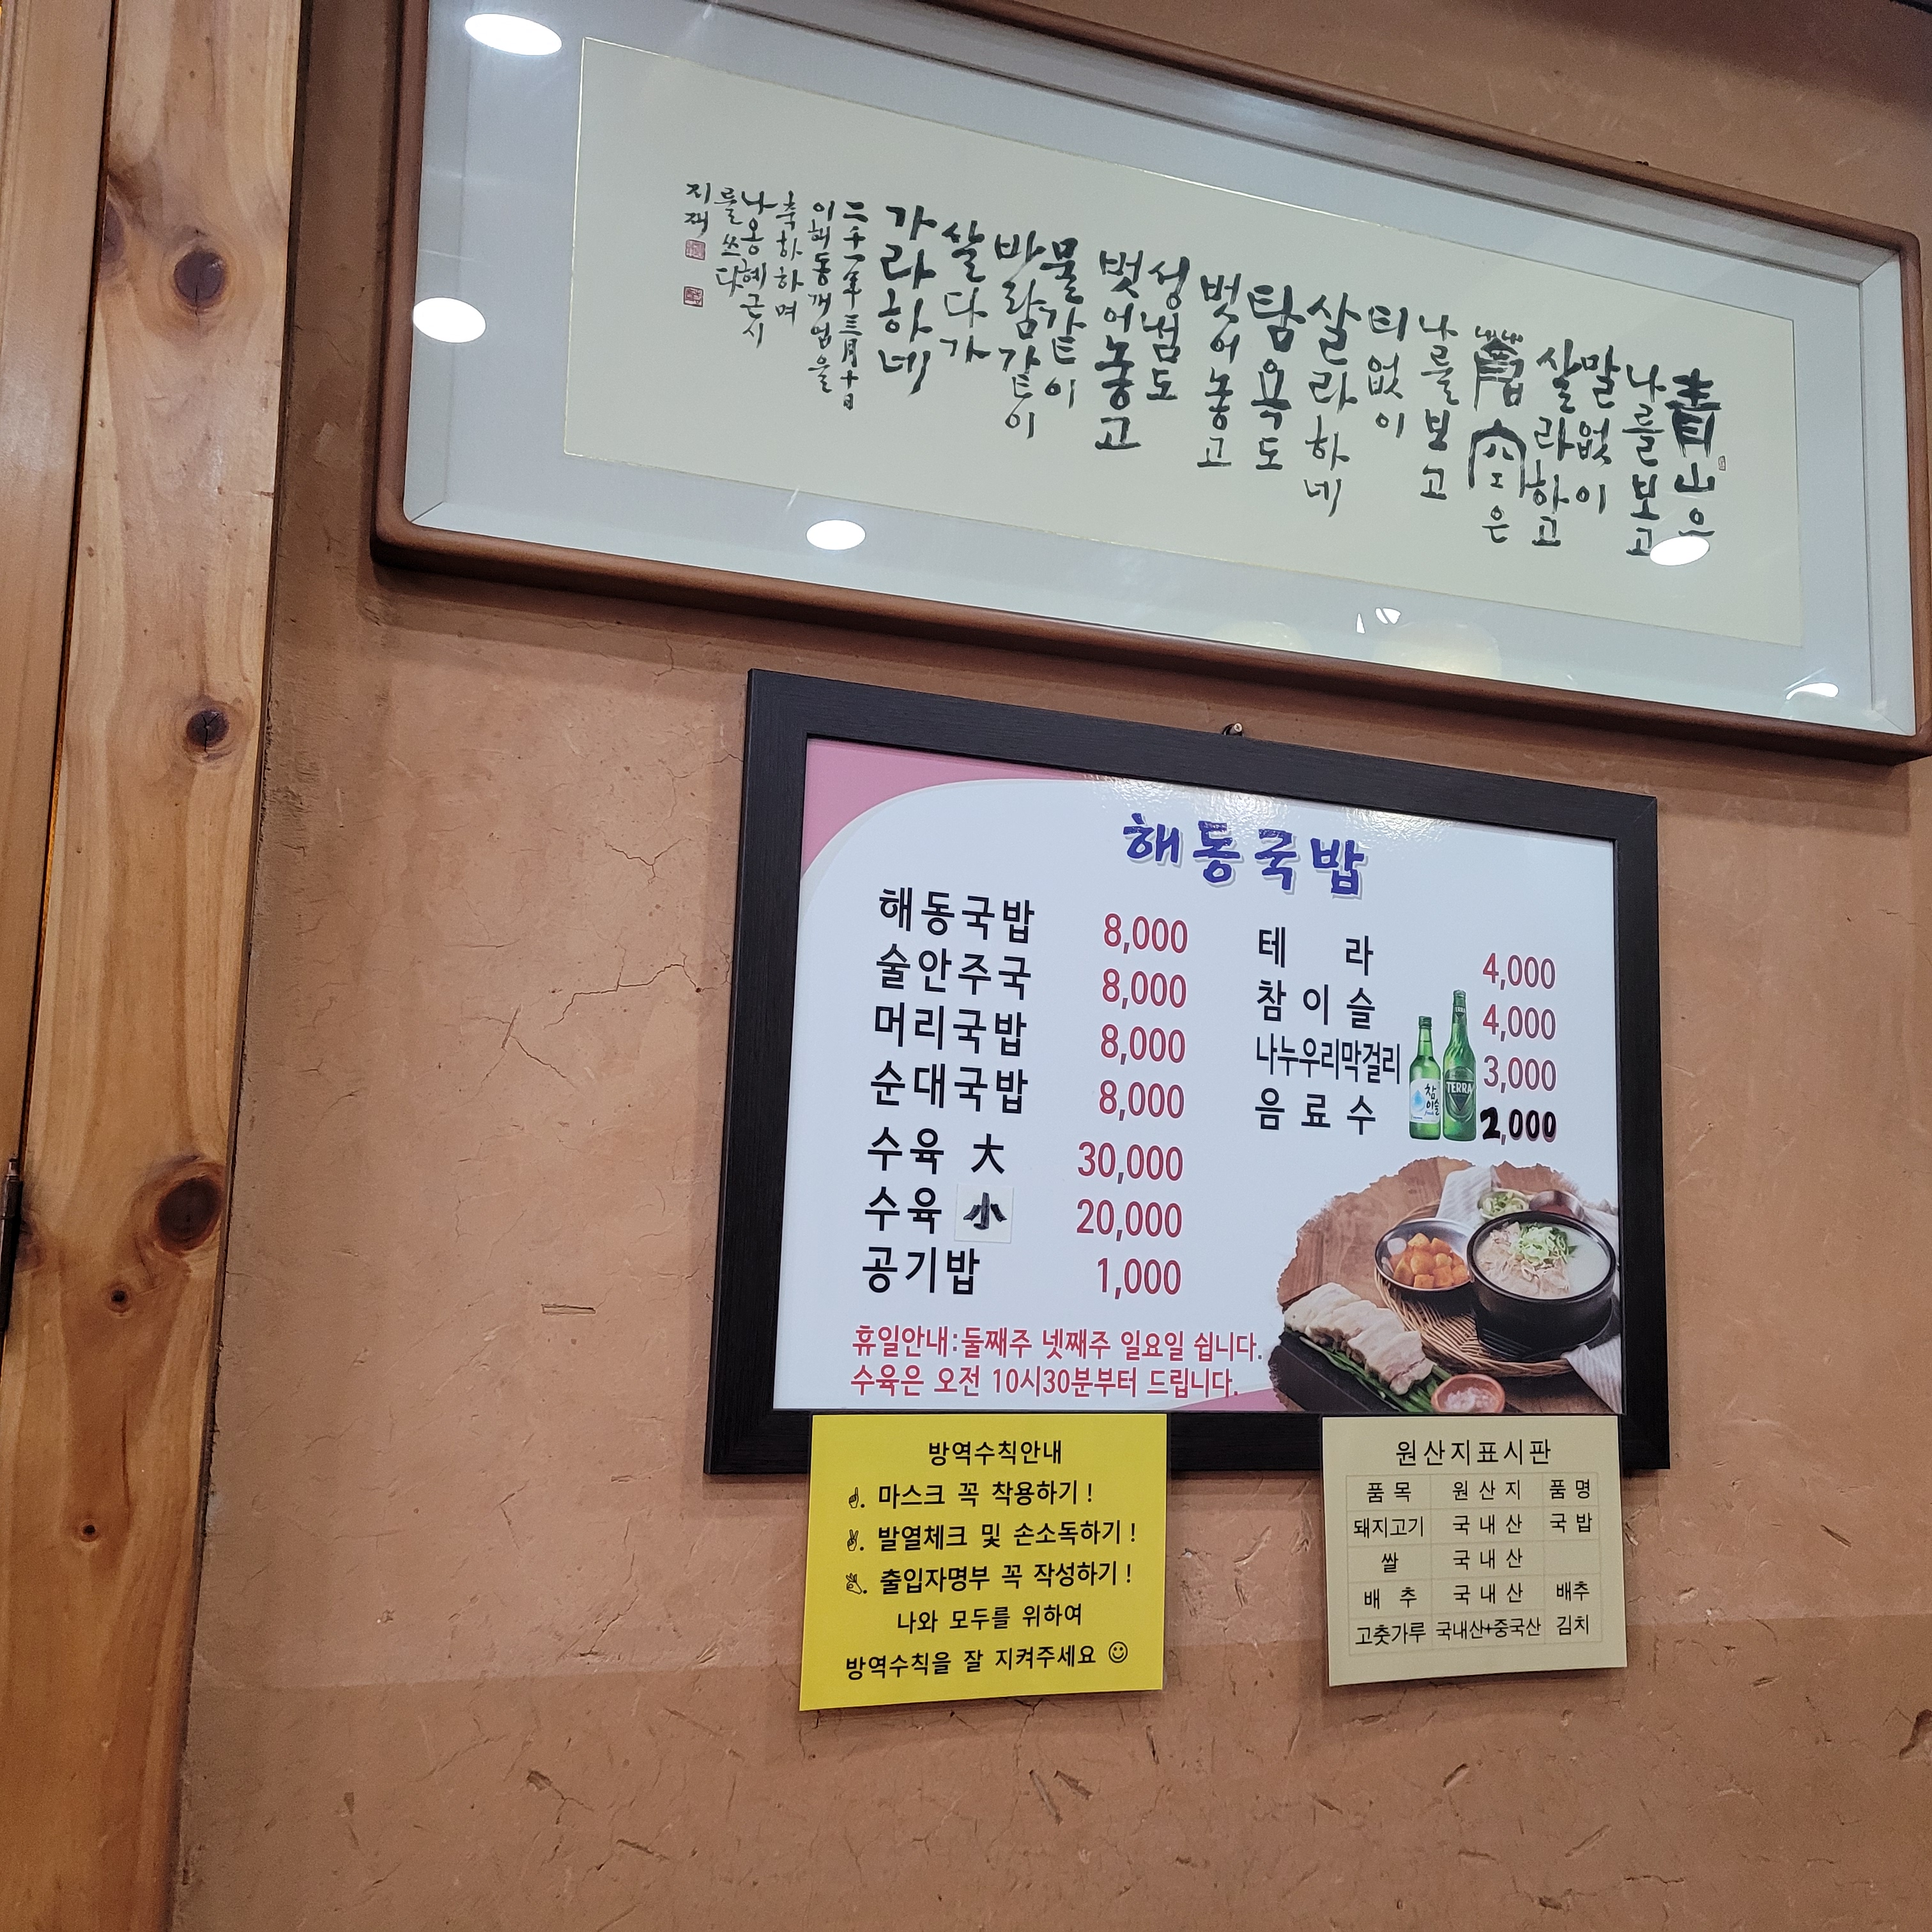 靑山은
나를보고
말없이
살라하고
蒼空은
나를보고
티없이
살라하네
탐욕도
벗어놓고
성냄도
벗어놓고
물같이
바람같이
살다가
가라하네
二千二一年 三月 十日
이해동개업을
축하하며
나옹혜근시
를 쓰다
지재
해동국밥
해동국밥 8,000
술안주국 8,000
머리국밥 8,000
순대국밥 8,000
수육 大 30,000
수육 小 20,000
공기밥 1,000
테 라 4,000
참 이 슬 4,000
나누우리막걸리 3,000
음 료 수 2,000
참이슬
TERRA
휴일안내:둘째주 넷째주 일요일 쉽니다.
수육은 오전 10시30분부터 드립니다.
방역수칙안내
☝. 마스크 꼭 착용하기!
✌. 발열체크 및 손소독하기!
👌. 출입자명부 꼭 작성하기!
나와 모두를 위하여
방역수칙을 잘 지켜주세요 ☺
원산지표시판
품 목 원 산 지 품 명
돼지고기 국 내 산 국 밥
쌀 국 내 산
배 추 국 내 산 배추
고춧가루 국내산+중국산 김치